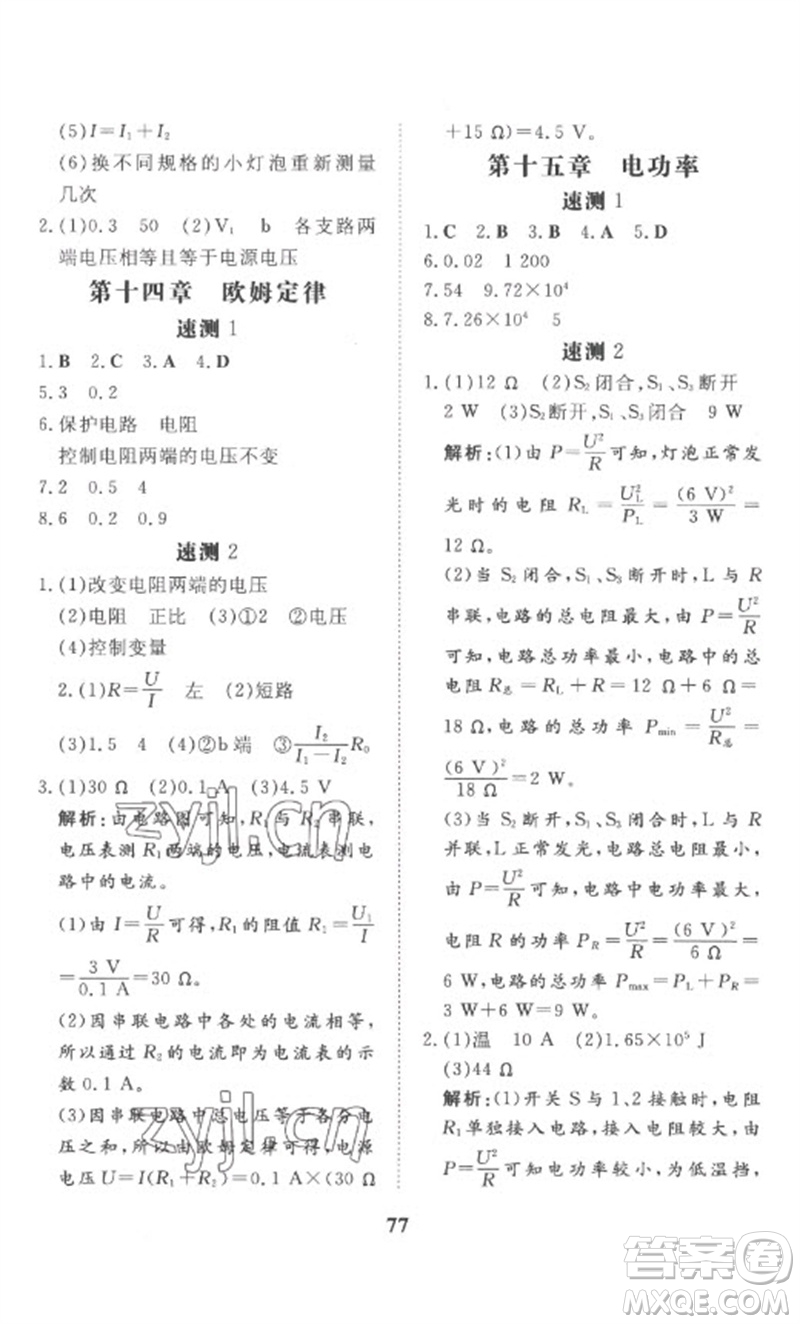 (5)I=I₁+I₂
(6)换不同规格的小灯泡重新测量
几次
2.(1)0.3 50 (2)V₁ b 各支路两
端电压相等且等于电源电压
第十四章 欧姆定律
速测1
1.B 2.C 3.A 4.D
5.3 0.2
6.保护电路 电阻
控制电阻两端的电压不变
7.2 0.5 4
8.6 0.2 0.9
速测2
1.(1)改变电阻两端的电压
(2)电阻 正比 (3)①2 ②电压
(4)控制变量
2.(1)R=U/I 左 (2)短路
(3)1.5 4 (4)②b端 ③I₂/(I₁-I₂)R₀
3.(1)30 Ω (2)0.1 A (3)4.5 V
解析:由电路图可知,R₁与R₂串联,
电压表测R₁两端的电压,电流表测电
路中的电流。
(1)由I=U/R可得,R₁的阻值R₁=U₁/I
=3 V/0.1 A=30 Ω。
(2)因串联电路中各处的电流相等,
所以通过R₂的电流即为电流表的示
数0.1 A。
(3)因串联电路中总电压等于各分电
压之和,所以由欧姆定律可得,电源
电压U=I(R₁+R₂)=0.1 A×(30 Ω
+15 Ω)=4.5 V。
第十五章 电功率
速测1
1.C 2.B 3.B 4.A 5.D
6.0.02 1 200
7.54 9.72×10⁴
8.7.26×10⁴ 5
速测2
1.(1)12 Ω (2)S₂闭合,S₁、S₃断开
2 W (3)S₂断开,S₁、S₃闭合 9 W
解析:(1)由P=U²/R可知,灯泡正常发
光时的电阻R_L=U_L²/P_L=(6 V)²/3 W=
12 Ω。
(2)当S₂闭合,S₁、S₃断开时,L与R
串联,电路的总电阻最大,由P=U²/R
可知,电路总功率最小,电路中的总
电阻R总=R_L+R=12 Ω+6 Ω=
18 Ω,电路的总功率P_min=U²/R总=
(6 V)²/18 Ω=2 W。
(3)当S₂断开,S₁、S₃闭合时,L与R
并联,L正常发光,电路的总电阻最小,
由P=U²/R可知,电路中电功率最大,
电阻R的功率P_R=U²/R=(6 V)²/6 Ω=
6 W,电路的总功率P_max=P_L+P_R=
3 W+6 W=9 W。
2.(1)温 10 A (2)1.65×10⁵ J
(3)44 Ω
解析:(1)开关S与1、2接触时,电阻
R₁单独接入电路,接入电阻较大,由
P=U²/R可知电功率较小,为低温挡,
77
zyjl.cn
zyjl.cn
答案圈
MXQE.COM